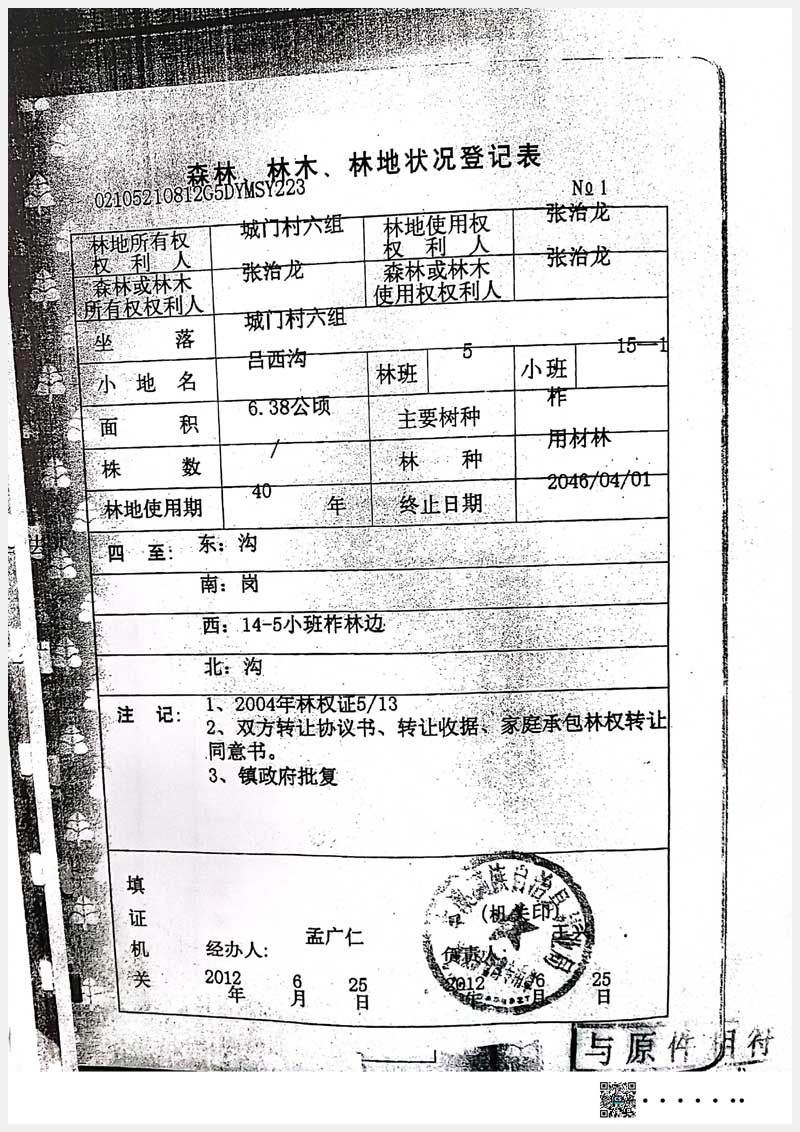 森林、林木、林地状况登记表
02105210812G5DYMSY223
№ 1
林地所有权权利人 城门村六组 林地使用权权利人 张治龙
森林或林木所有权权利人 张治龙 森林或林木使用权权利人 张治龙
坐落 城门村六组
小地名 吕西沟 林班 5 小班 15--1
面积 6.38公顷 主要树种 柞
株数 / 林种 用材林
林地使用期 40 年 终止日期 2046/04/01
四至: 东: 沟
南: 岗
西: 14-5小班柞林边
北: 沟
注记: 1、2004年林权证5/13
2、双方转让协议书、转让收据、家庭承包林权转让
同意书。
3、镇政府批复
填证机关
(机关印)
经办人: 孟广仁 负责人
2012年 6月 25日 2012年 6月 25日
与原件相符